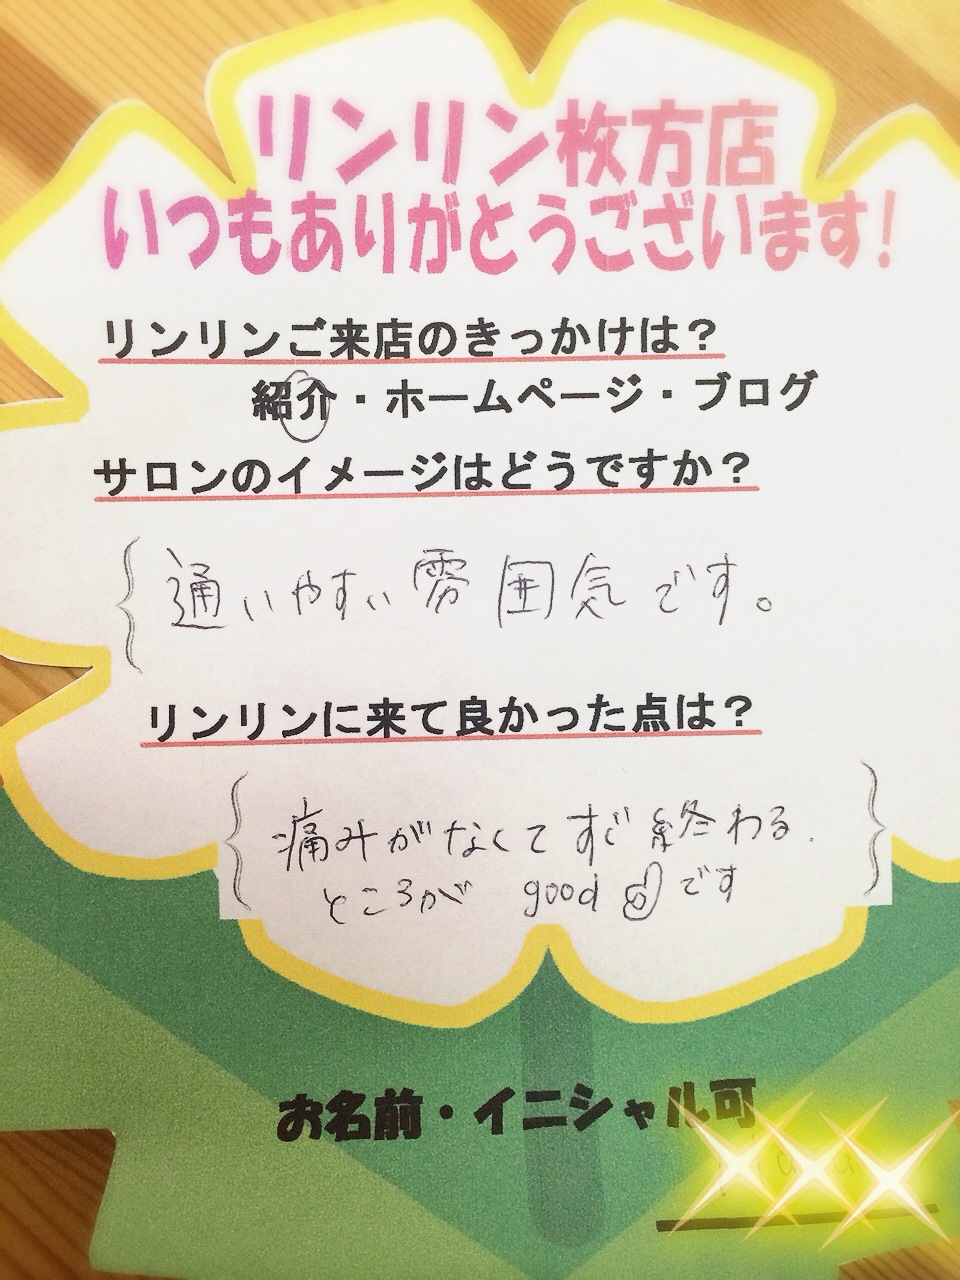 リンリン枚方店
いつもありがとうございます!
リンリンご来店のきっかけは?
紹介・ホームページ・ブログ
サロンのイメージはどうですか?
通いやすい雰囲気です。
リンリンに来て良かった点は?
痛みがなくてすぐ終わる.
ところが good です
お名前・イニシャル可